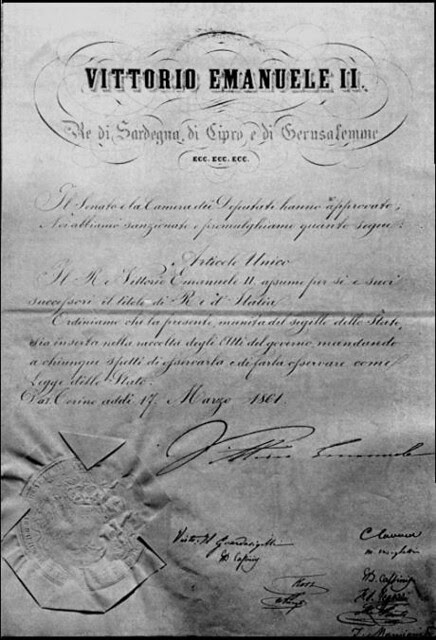 VITTORIO EMANUELE II.
Re di Sardegna, di Cipro e di Gerusalemme
ECC. ECC. ECC.
Il Senato e la Camera dei Deputati hanno approvato,
Noi abbiamo sanzionato e promulghiamo quanto segue:
Articolo Unico
Il Re Vittorio Emanuele II assume per sè e suoi
successori il titolo di Re d'Italia
Ordiniamo che la presente, munita del sigillo dello Stato,
sia inserta nella raccolta degli Atti del governo, mandando
a chiunque spetti di osservarla e di farla osservare come
Legge dello Stato.
Dat. Torino addì 17. Marzo 1861
Vittorio Emanuele
C Cavour
M Minghetti